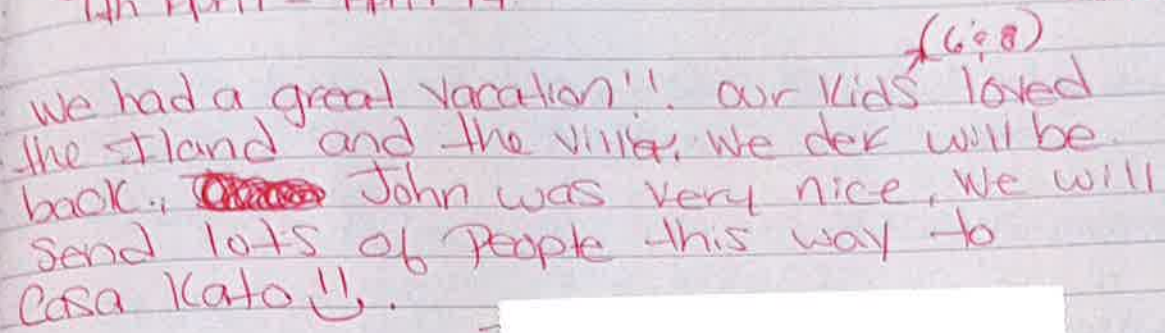 (6 & 8)
We had a great vacation!! our kids loved
the Iland and the villa. We dek will be
back. John was very nice. We will
send lots of people this way to
Casa Kato